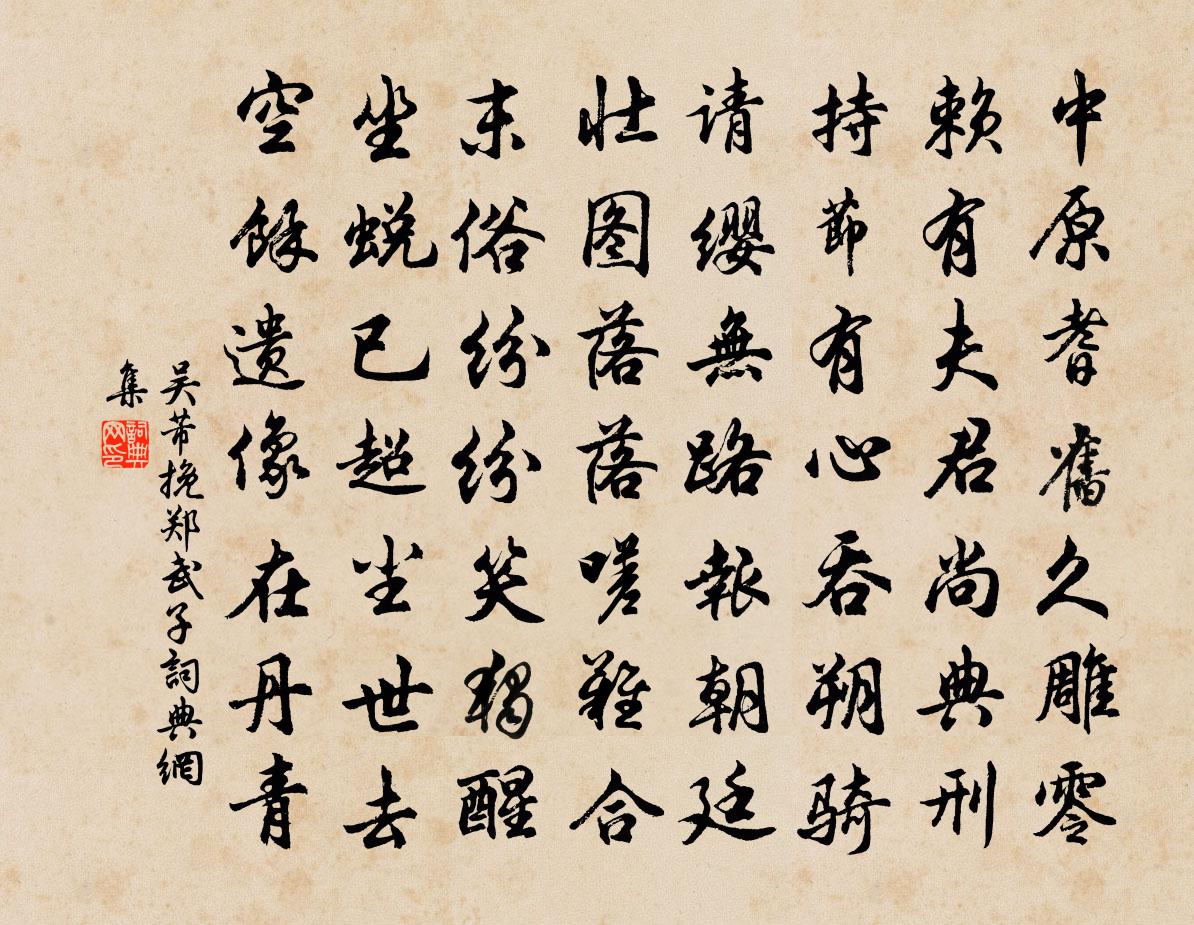 中原耆舊久雕零
赖有夫君尚典刑
持節有心吞朔骑
请缨無路報朝廷
壮图落落嗟難合
末俗纷纷笑獨醒
坐蜕已超尘世去
空餘遗像在丹青
吴芾挽郑武子詞典網
集
詞典
网印